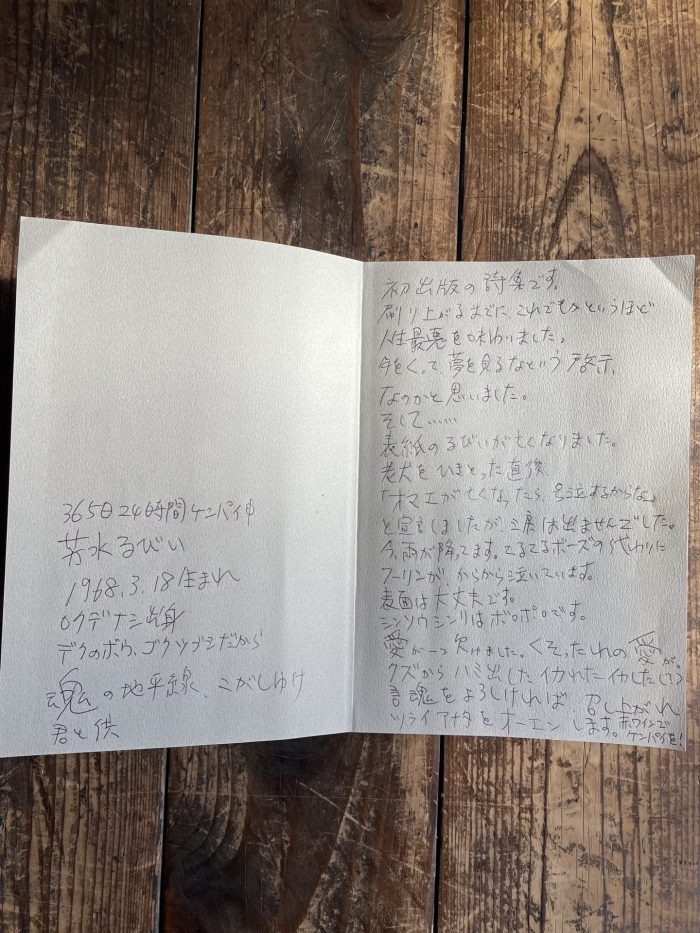 365日24時間ケンパイ中
芳水るびい
1968.3.18生まれ
ロクデナシ出身
デクのボウ、ゴクツブシだから
魂の地平線、こがしゆけ
君と供
初出版の詩集です。
刷り上がるまでに、これでもかというほど
人生最悪を味わいました。
年をくって夢を見るなという啓示、
なのかと思いました。
そして……
表紙のるびいが亡くなりました。
老犬をひきとった直後
「オマエが亡くなったら、号泣するからな」
と宣言しましたが、涙は出ませんでした。
今、雨が降ってます。てるてるボーズの代わりに
フーリンが、からから泣いています。
表面は大丈夫です。
シンソウシンリはボロボロです。
愛が一つ欠けました。くそったれの愛が。
クズからハミ出したイカれたイカした
言魂をよろしければ 召し上がれ
ツライアナタをオーエンします。赤ワインで
ケンパイを!